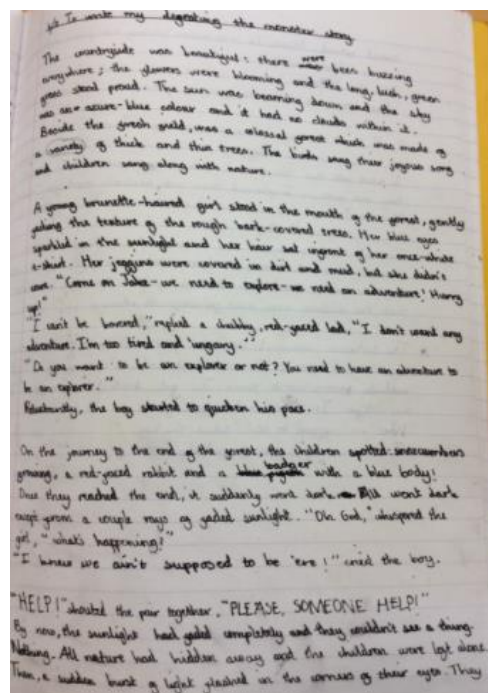 To write my defeating the monster story
The countryside was beautiful: there were bees buzzing
everywhere; the flowers were blooming and the long, lush, green
grass stood proud. The sun was beaming down and the sky
was an azure-blue colour and it had no clouds within it.
Beside the fresh field, was a colossal forest which was made of
a variety of thick and thin trees. The birds sang their joyous song
and children sang along with nature.
A young brunette-haired girl stood in the mouth of the forest, gently
feeling the texture of the rough bark-covered trees. Her blue eyes
sparkled in the sunlight and her hair sat infront of her once-white
t-shirt. Her joggins were covered in dirt and mud, but she didn't
care. "Come on Jake - we need to explore - we need an adventure! Hurry
up!"
"I can't be bovered," replied a chubby, red-faced lad, "I don't want any
adventure. I'm too tired and 'ungary."
"Do you want to be an explorer or not? You need to have an adventure to
be an explorer."
Reluctantly, the boy started to quicken his pace.
On the journey to the end of the forest, the children spotted
growing, a red-faced rabbit and a badger with a blue body!
Once they reached the end, it suddenly went dark. All went dark
except from a couple rays of faded sunlight. "Oh God," whispered the
girl, "what's happening?"
"I knew we ain't supposed to be 'ere!" cried the boy.
"HELP!" shouted the pair together, "PLEASE, SOMEONE HELP!"
By now, the sunlight had faded completely and they couldn't see a thing.
Nothing. All nature had hidden away and the children were left alone.
Then, a sudden burst of light flashed in the corners of their eyes. They